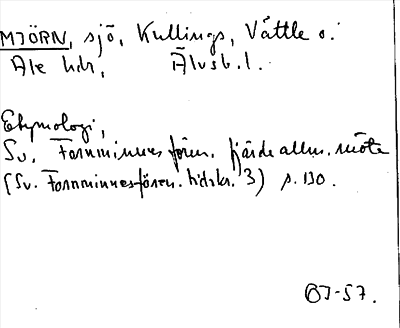 MJÖRN, sjö, Kullings, Vättle o.
Ale hdr, Älvsb. l.
Etymologi,
Sv. Fornminnesfören. fjärde allm. möte
(Sv. Fornminnesfören. tidskr. 3) s. 130.
OJ-57.